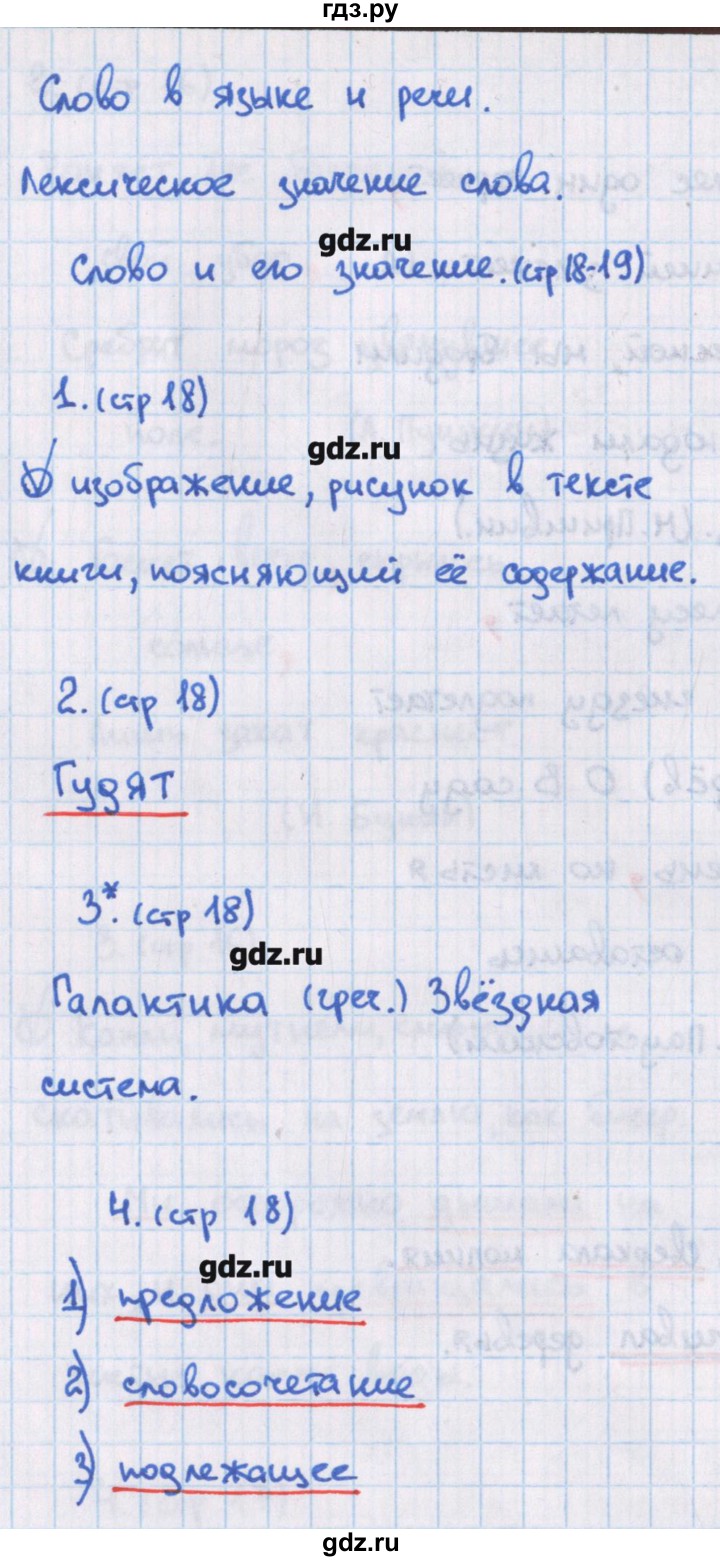 гдз.ру
Слово в языке и речи.
Лексическое значение слова.
gdz.ru
Слово и его значение. (стр 18-19)
1. (стр 18)
gdz.ru
изображение, рисунок в тексте
книги, поясняющий её содержание.
2. (стр 18)
Гудят
3*. (стр 18)
gdz.ru
Галактика (греч.) Звёздная
система.
4. (стр 18)
gdz.ru
1) предложение
2) словосочетание
3) подлежащее
gdz.ru